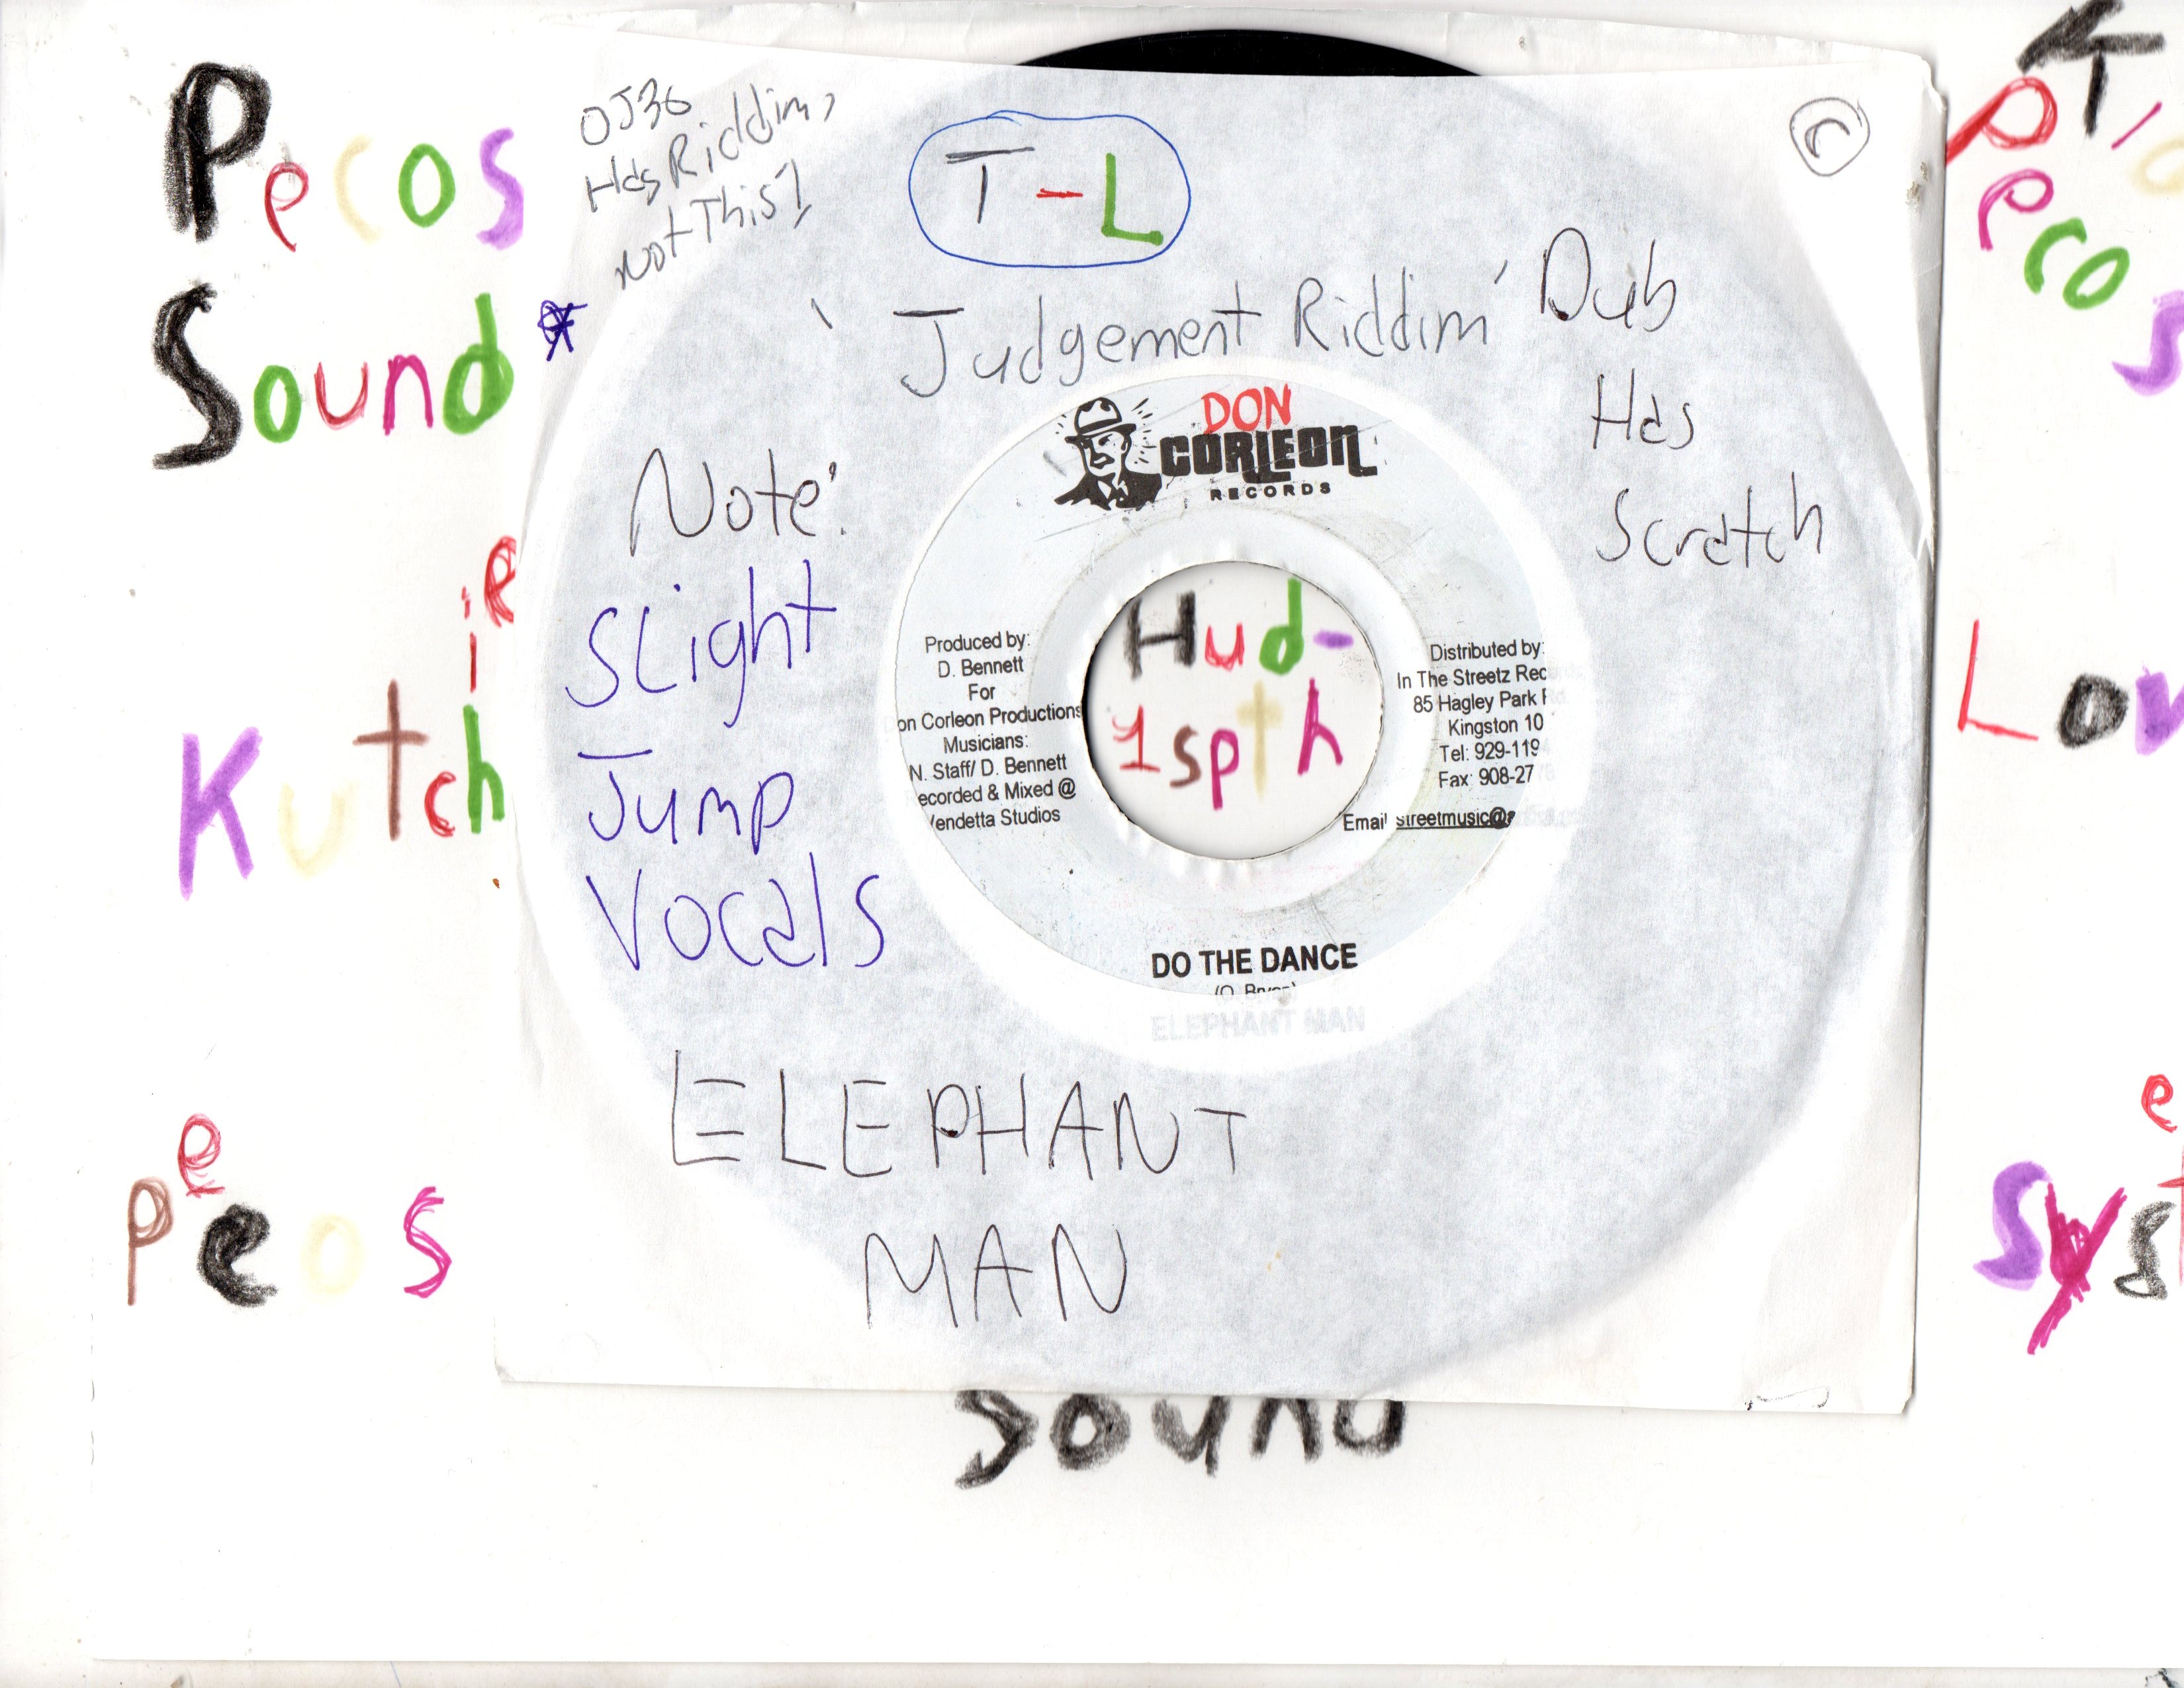 Pecos
Sound*
OJ36
Has Riddim,
not This 1
T-L
'Judgement Riddim'
Dub
Has
Scratch
Note:
Slight
Jump
Vocals
DON
CORLEON
RECORDS
Produced by:
D. Bennett
For
on Corleon Productions
Musicians:
N. Staff/ D. Bennett
ecorded & Mixed @
Vendetta Studios
Hud-
1spth
Distributed by:
In The Streetz Rec
85 Hagley Park R
Kingston 10
Tel: 929-119
Fax: 908-27
Email streetmusic@
DO THE DANCE
ELEPHANT MAN
ELEPHANT
MAN
Pecos
Kutchie
Low
Peeos
Syst
Sound